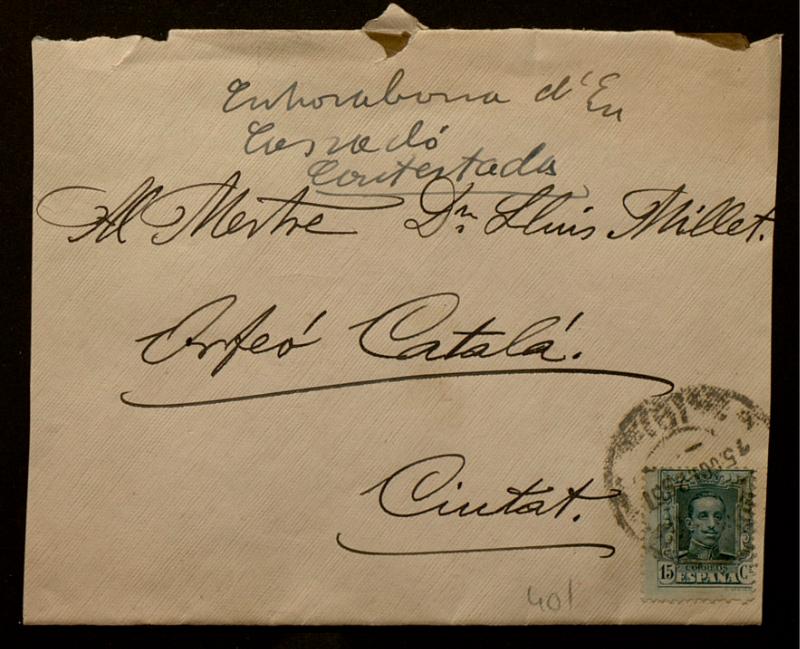 Enhorabona d'En
Cassadó
Contestada
Al Mestre Dn. Lluis Millet.
Orfeó Catalá.
Ciutat.
CORREOS
15 ESPAÑA Cs
401